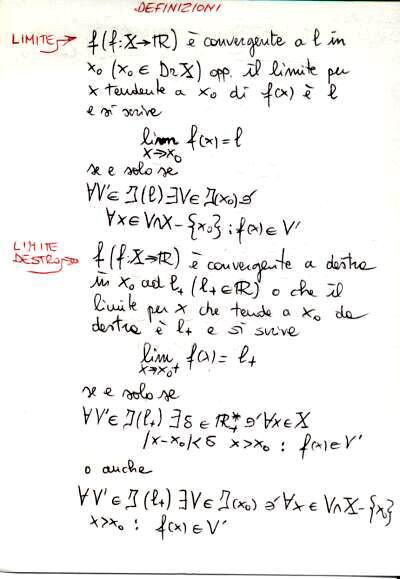 DEFINIZIONI
LIMITE → f(f:X→ℝ) è convergente a l in
x₀ (x₀ ∈ DrX) opp. il limite per
x tendente a x₀ di f(x) è l
e si scrive
lim f(x)=l
x→x₀
se e solo se
∀V'∈ℑ(l) ∃V∈ℑ(x₀)∋'
∀x∈V∩X-{x₀}: f(x)∈V'
LIMITE DESTRO → f(f:X→ℝ) è convergente a destra
in x₀ ad l₊ (l₊∈ℝ) o che il
limite per x che tende a x₀ da
destra è l₊ e si scrive
lim f(x)= l₊
x→x₀⁺
se e solo se
∀V'∈ℑ(l₊) ∃δ∈ℝ₊* ∋' ∀x∈X
|x-x₀|<δ x>x₀ : f(x)∈V'
o anche
∀V'∈ℑ(l₊) ∃V∈ℑ(x₀) ∋' ∀x∈V∩X-{x₀}
x>x₀ : f(x)∈V'